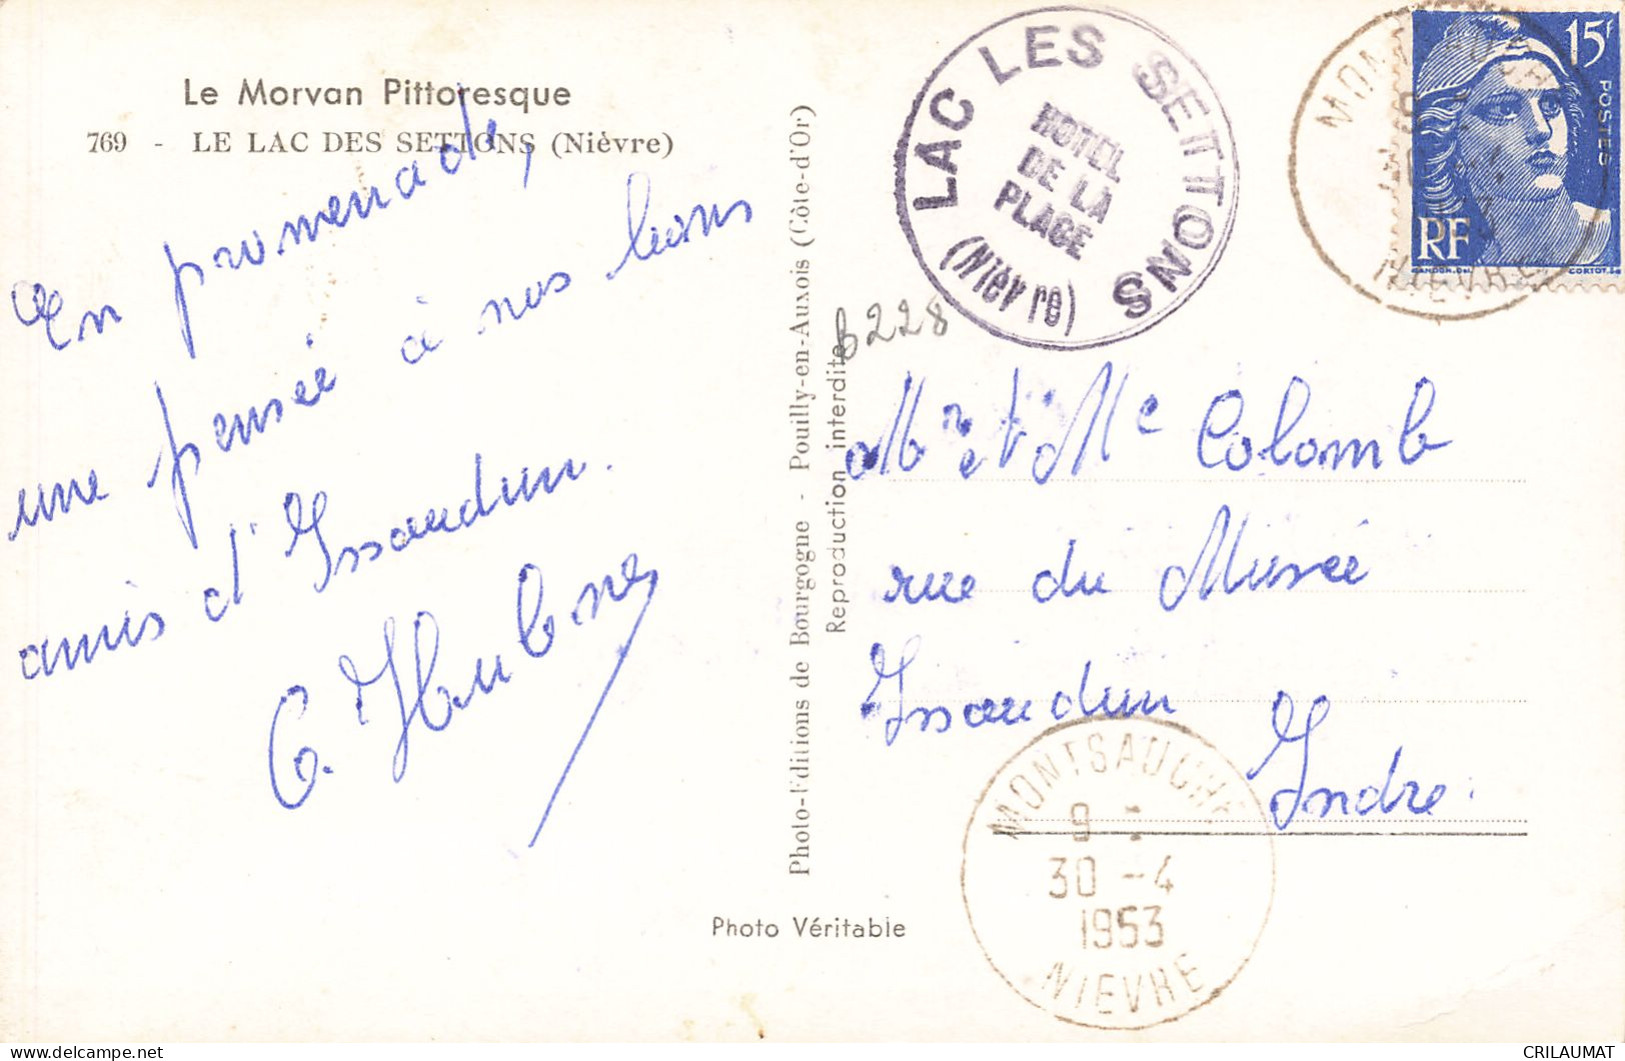 Le Morvan Pittoresque
769 - LE LAC DES SETTONS (Nièvre)
En promenade,
une pensée à nos bons
amis d'Issoudun.
Photo-Editions de Bourgogne - Pouilly-en-Auxois (Côte-d'Or)
Reproduction interdite
Photo Véritable
LAC LES SETTONS
HOTEL
DE LA
PLACE
(Nièvre)
15F
POSTES
RF
GANDON.Del.
CORTOT.Sc
NIEVRE
6228
Mr et Me Colomb
rue du Musée
Issoudun
Indre.
MONTSAUCHE
30 -4
1953
NIEVRE
CRILAUMAT